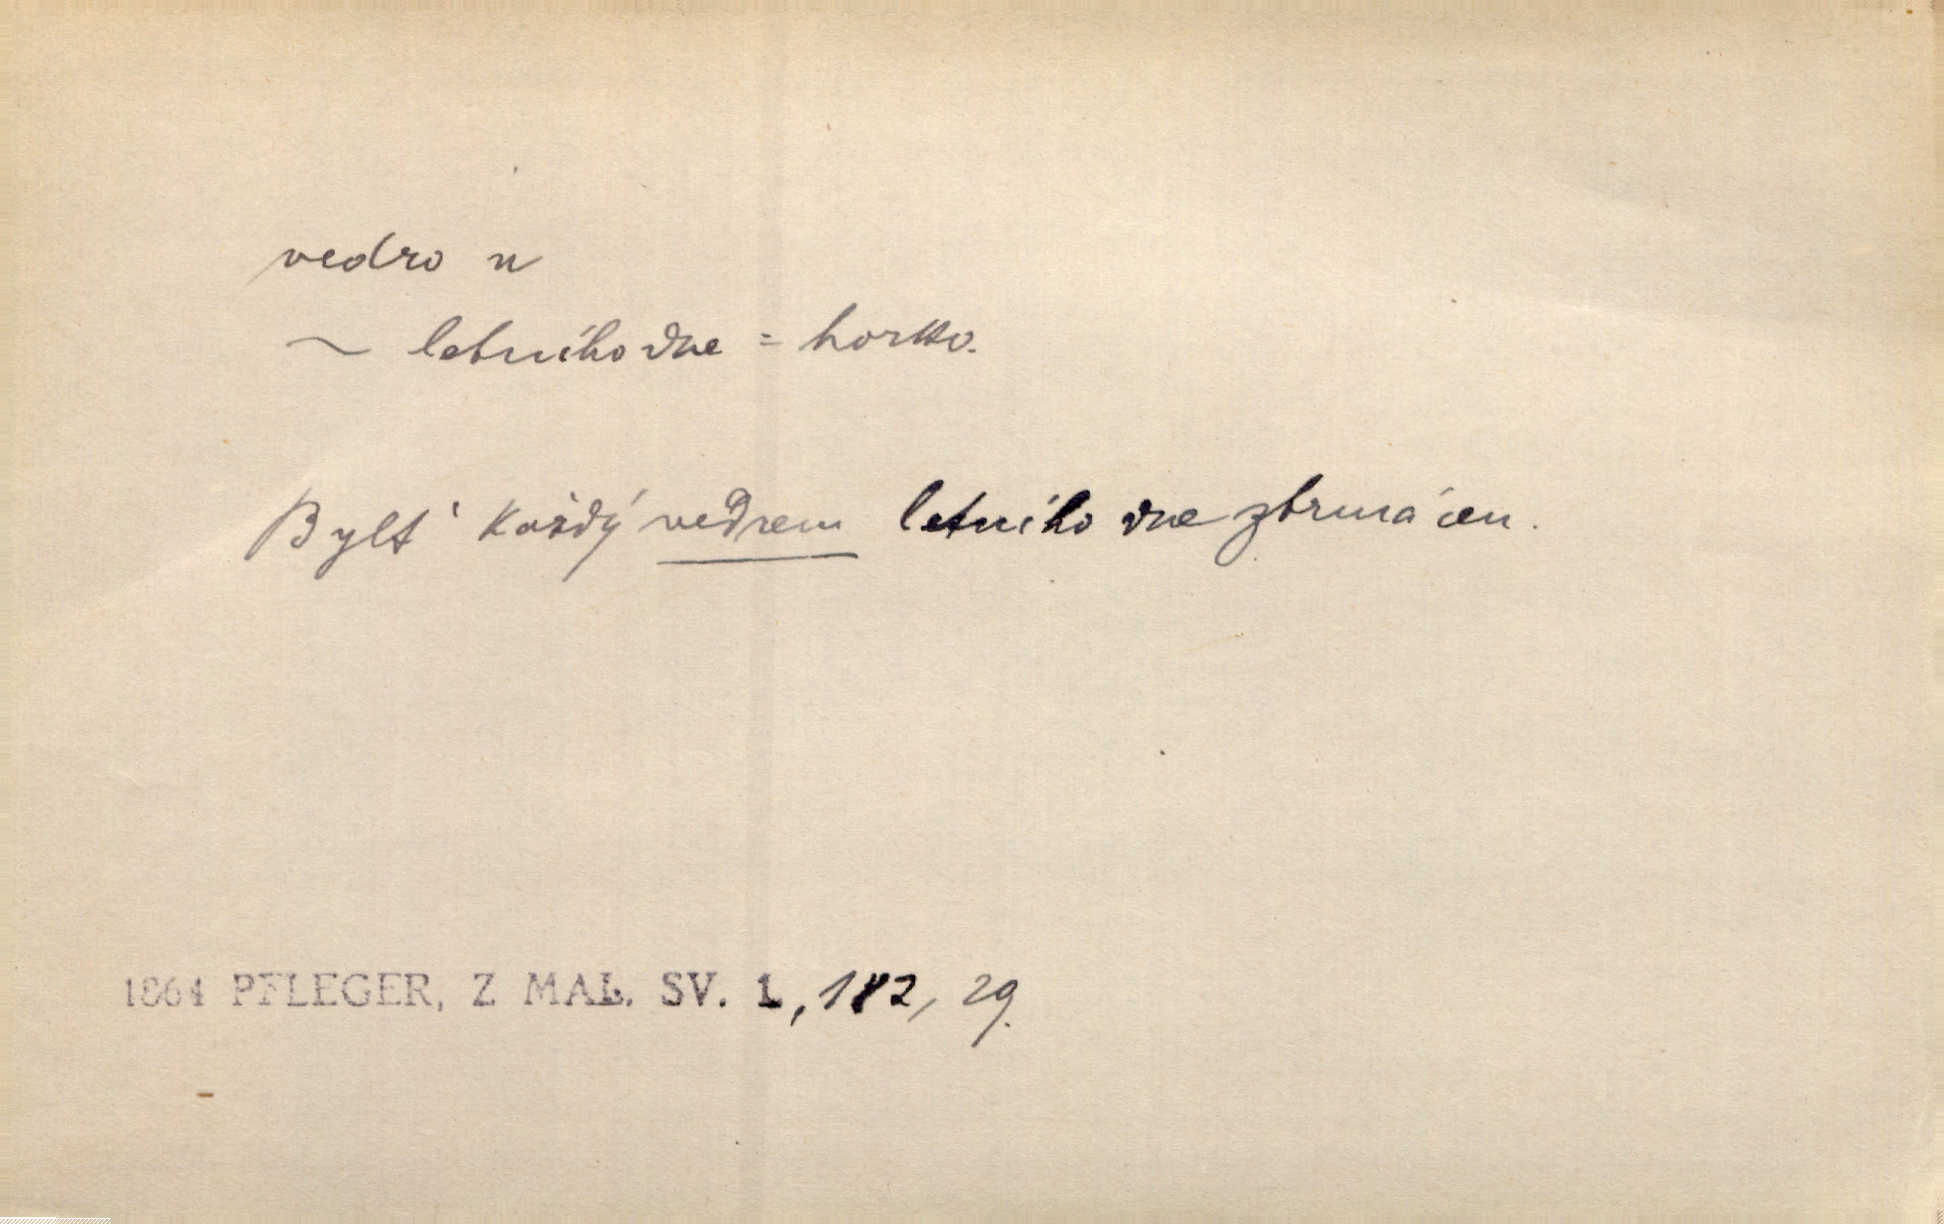 vedro n
~ letního dne = horko.
Bylť každý vedrem letního dne zbrmácen.
1864 PFLEGER, Z MAL. SV. 1, 182, 29.